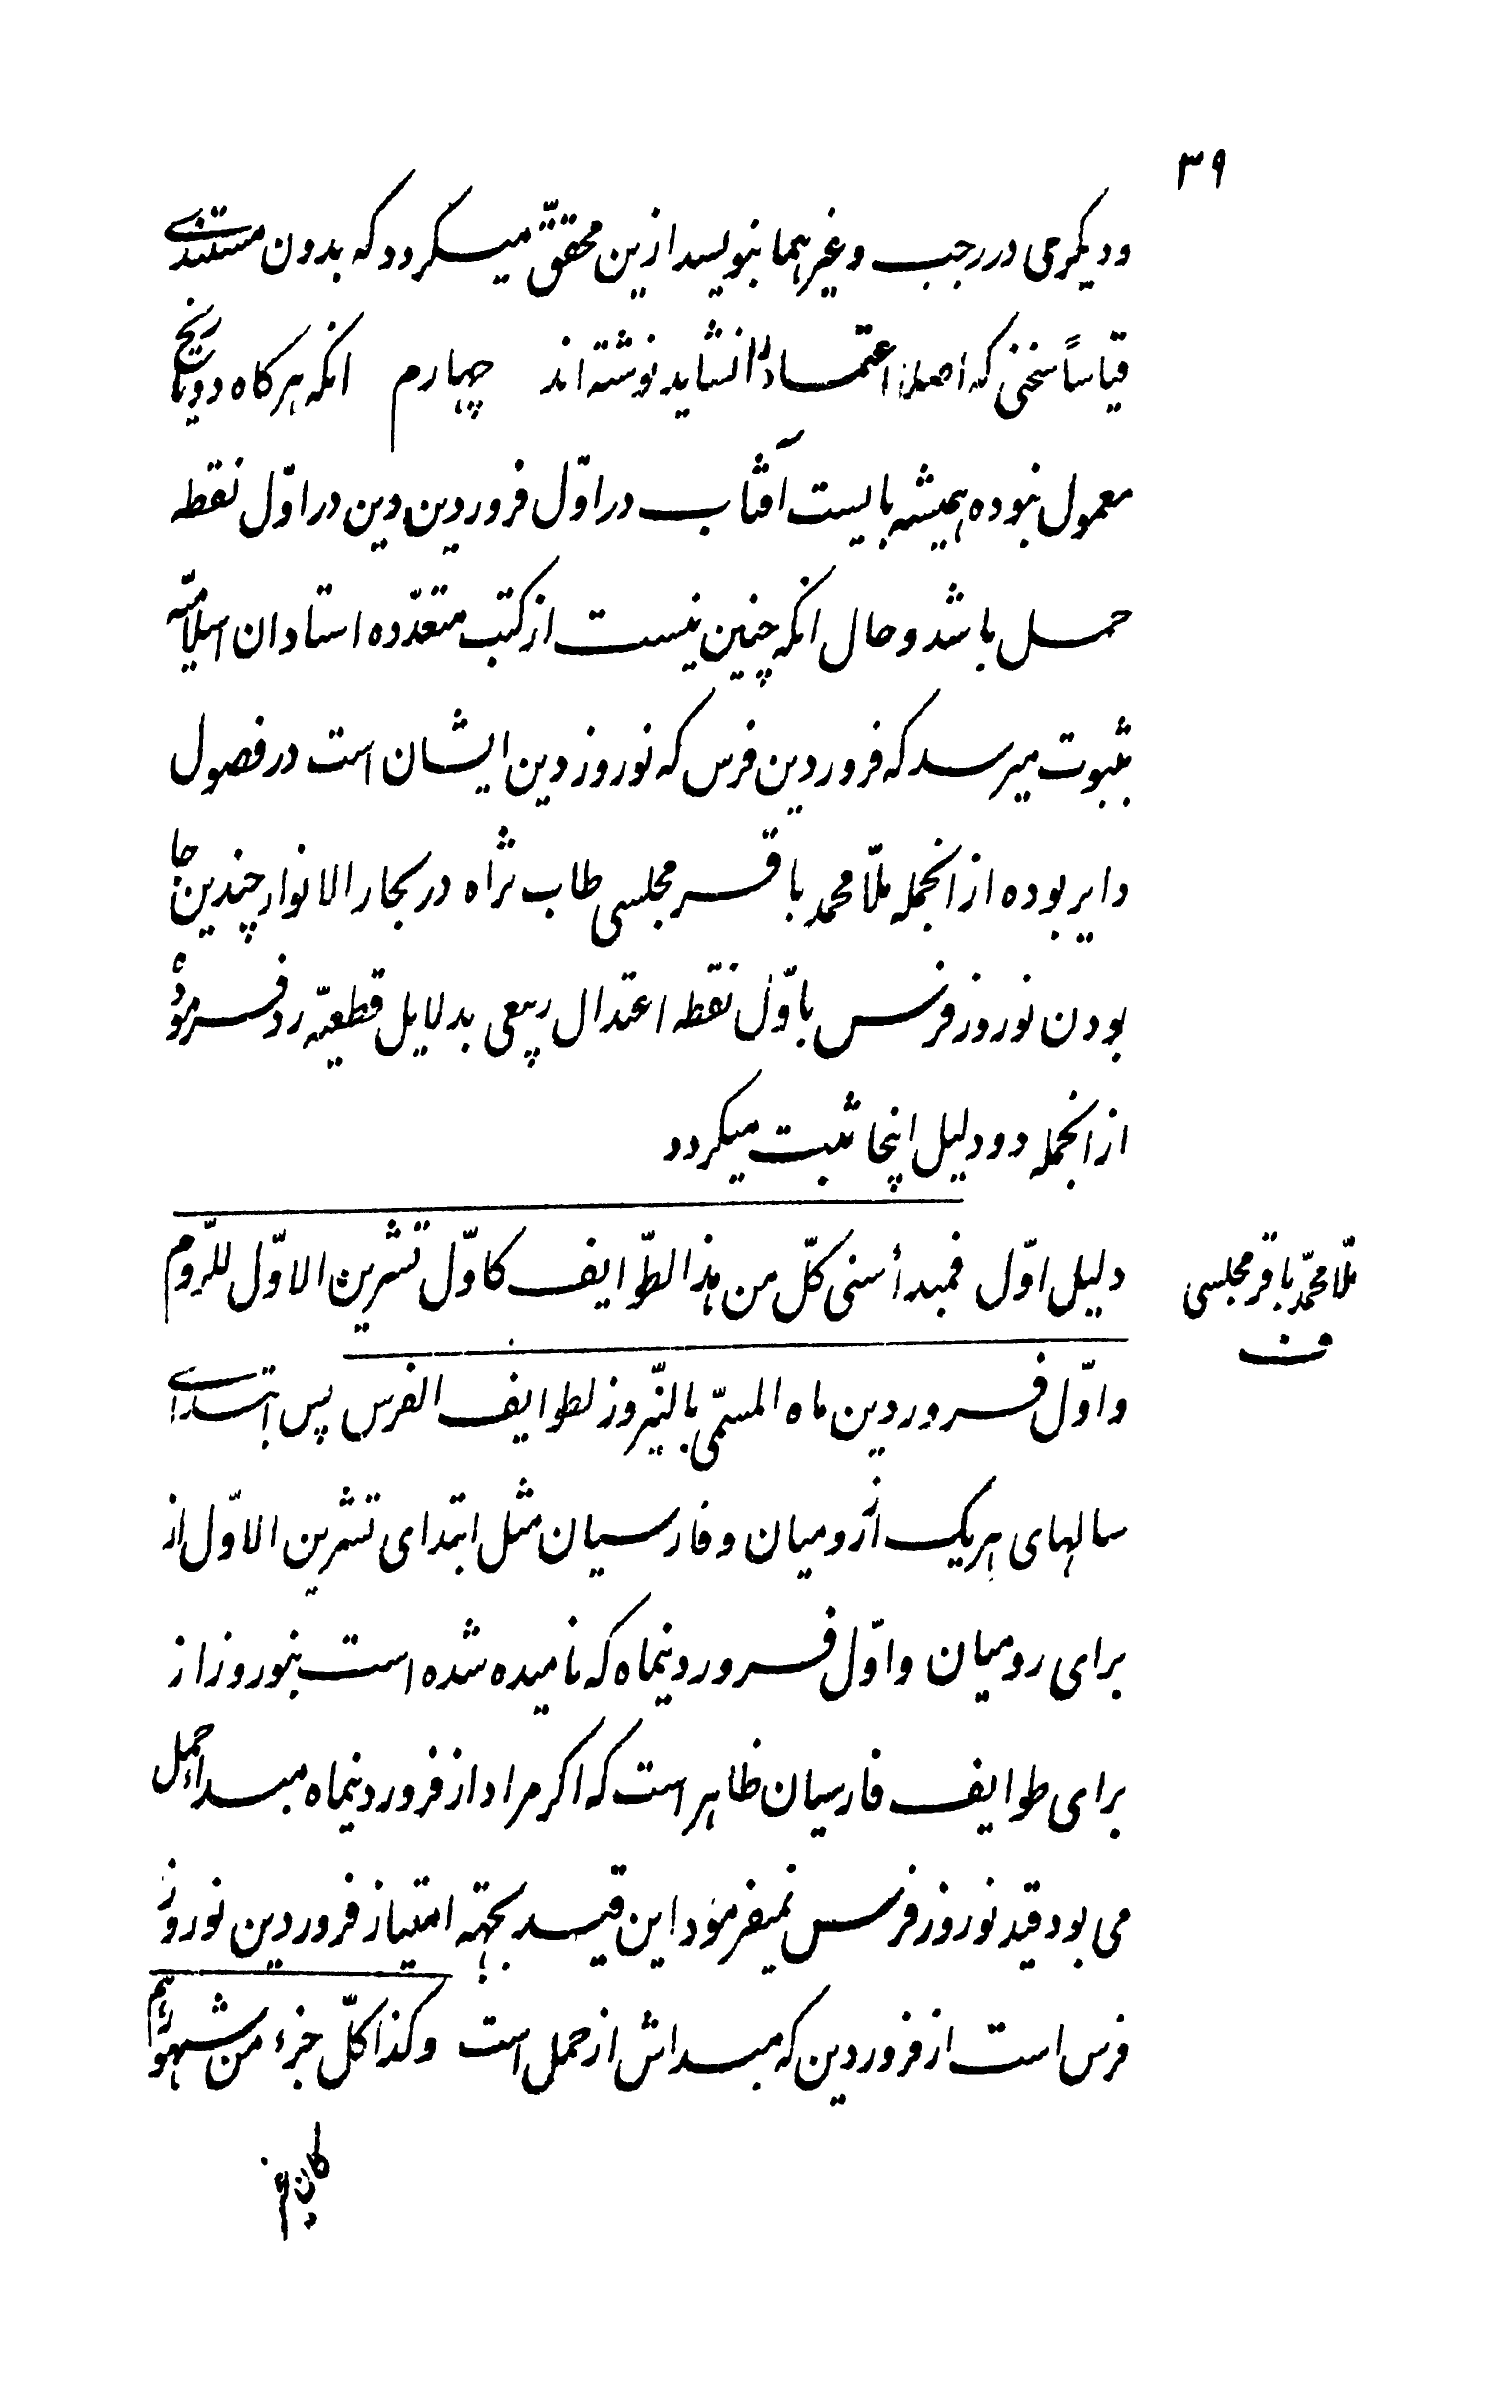 ۳۹
ودیکرمی در رجب وغیرهما بنویسد ازین محقّق میکردد که بدون مستندی
قیاساً سخنی که اصلا اعتماد را نشاید نوشته اند چهارم انکه هرکاه دو تاریخ
معمول نبوده همیشه بایست آفتاب در اوّل فروردین دین در اوّل نقطه
حمل باشد وحال انکه چنین نیست از کتب متعدّده استادان اسلامیّه
بثبوت میرسد که فروردین فرس که نوروز دین ایشان است در فصول
دایر بوده از انجمله ملّا محمد باقر مجلسی طاب ثراه در بحار الانوار چندین جا
بودن نوروز فرس باوّل نقطه اعتدال ربیعی بدلایل قطعیّه رد فرموده
از انجمله دو دلیل اینجا ثبت میکردد
دلیل اوّل فمبدأ سنی کلّ من هذا الطّوایف کاوّل تشرین الاوّل للرّوم
ملّا محمّد باقر مجلسی
ف
واوّل فروردین ماه المسمّی بالنّیروز لطوایف الفرس پس ابتدای
سالهای هریک از رومیان وفارسیان مثل ابتدای تشرین الاوّل از
برای رومیان واوّل فروردینماه که نامیده شده است بنوروز از
برای طوایف فارسیان ظاهر است که اکر مراد از فروردینماه مبداء حمل
می بود قید نوروز فرس نمیفرمود این قید بجهته امتیاز فروردین نوروز
فرس است از فروردین که مبداش از حمل است وکذا کلّ جزء من شهورهم
کان فی